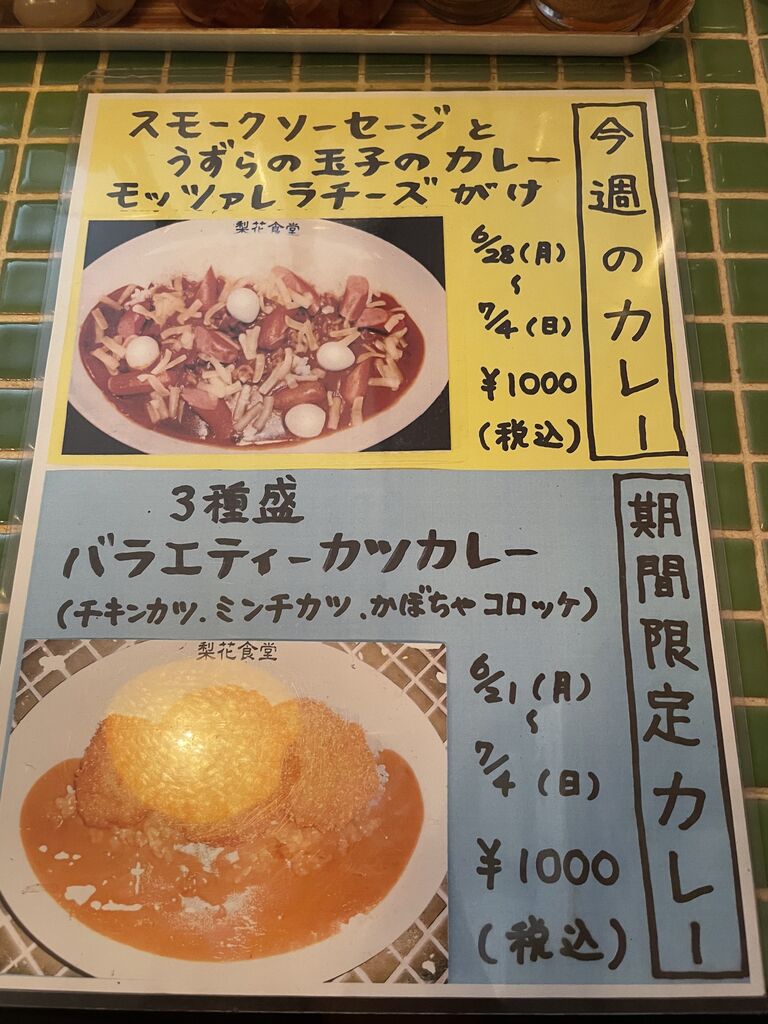 今週のカレー
スモークソーセージと
うずらの玉子のカレー
モッツァレラチーズがけ
梨花食堂
6/28(月)
〜
7/4(日)
¥1000
(税込)
期間限定カレー
3種盛
バラエティーカツカレー
(チキンカツ.ミンチカツ.かぼちゃコロッケ)
梨花食堂
6/21(月)
〜
7/4(日)
¥1000
(税込)